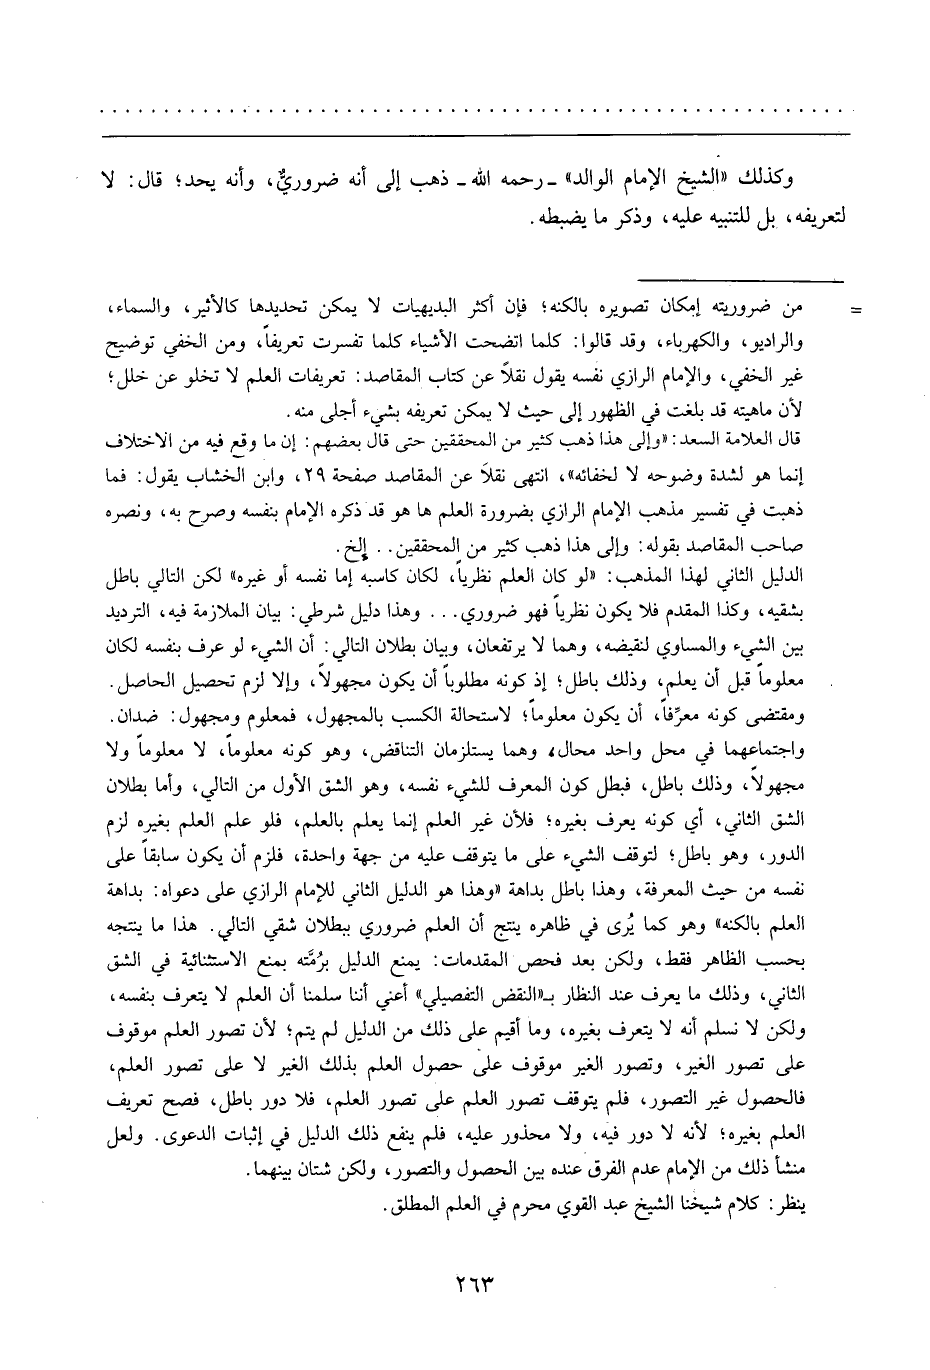 وكذلك «الشيخ الإمام الوالد» ـ رحمه الله ـ ذهب إلى أنه ضروريٌّ، وأنه يحد؛ قال: لا
لتعريفه، بل للتنبيه عليه، وذكر ما يضبطه.
= من ضروريته إمكان تصويره بالكنه؛ فإن أكثر البديهيات لا يمكن تحديدها كالأثير، والسماء،
والراديو، والكهرباء، وقد قالوا: كلما اتضحت الأشياء كلما تفسرت تعريفاً، ومن الخفي توضيح
غير الخفي، والإمام الرازي نفسه يقول نقلاً عن كتاب المقاصد: تعريفات العلم لا تخلو عن خلل؛
لأن ماهيته قد بلغت في الظهور إلى حيث لا يمكن تعريفه بشيء أجلى منه.
قال العلامة السعد: «وإلى هذا ذهب كثير من المحققين حتى قال بعضهم: إن ما وقع فيه من الاختلاف
إنما هو لشدة وضوحه لا لخفائه»، انتهى نقلاً عن المقاصد صفحة ٢٩، وابن الخشاب يقول: فما
ذهبت في تفسير مذهب الإمام الرازي بضرورة العلم ها هو قد ذكره الإمام بنفسه وصرح به، ونصره
صاحب المقاصد بقوله: وإلى هذا ذهب كثير من المحققين.. إلخ.
الدليل الثاني لهذا المذهب: «لو كان العلم نظرياً، لكان كاسبه إما نفسه أو غيره» لكن التالي باطل
بشقيه، وكذا المقدم فلا يكون نظرياً فهو ضروري... وهذا دليل شرطي: بيان الملازمة فيه، الترديد
بين الشيء والمساوي لنقيضه، وهما لا يرتفعان، وبيان بطلان التالي: أن الشيء لو عرف بنفسه لكان
معلوماً قبل أن يعلم، وذلك باطل؛ إذ كونه مطلوباً أن يكون مجهولاً، وإلا لزم تحصيل الحاصل.
ومقتضى كونه معرِّفاً، أن يكون معلوماً؛ لاستحالة الكسب بالمجهول، فمعلوم ومجهول: ضدان.
واجتماعهما في محل واحد محال، وهما يستلزمان التناقض، وهو كونه معلوماً، لا معلوماً ولا
مجهولاً، وذلك باطل، فبطل كون المعرف للشيء نفسه، وهو الشق الأول من التالي، وأما بطلان
الشق الثاني، أي كونه يعرف بغيره؛ فلأن غير العلم إنما يعلم بالعلم، فلو علم العلم بغيره لزم
الدور، وهو باطل؛ لتوقف الشيء على ما يتوقف عليه من جهة واحدة، فلزم أن يكون سابقاً على
نفسه من حيث المعرفة، وهذا باطل بداهة «وهذا هو الدليل الثاني للإمام الرازي على دعواه: بداهة
العلم بالكنه» وهو كما يُرى في ظاهره ينتج أن العلم ضروري ببطلان شقي التالي. هذا ما ينتجه
بحسب الظاهر فقط، ولكن بعد فحص المقدمات: يمنع الدليل برُمَّته بمنع الاستثنائية في الشق
الثاني، وذلك ما يعرف عند النظار بـ«النقض التفصيلي» أعني أننا سلمنا أن العلم لا يتعرف بنفسه،
ولكن لا نسلم أنه لا يتعرف بغيره، وما أقيم على ذلك من الدليل لم يتم؛ لأن تصور العلم موقوف
على تصور الغير، وتصور الغير موقوف على حصول العلم بذلك الغير لا على تصور العلم،
فالحصول غير التصور، فلم يتوقف تصور العلم على تصور العلم، فلا دور باطل، فصح تعريف
العلم بغيره؛ لأنه لا دور فيه، ولا محذور عليه، فلم ينفع ذلك الدليل في إثبات الدعوى. ولعل
منشأ ذلك من الإمام عدم الفرق عنده بين الحصول والتصور، ولكن شتان بينهما.
ينظر: كلام شيخنا الشيخ عبد القوي محرم في العلم المطلق.
٢٦٣